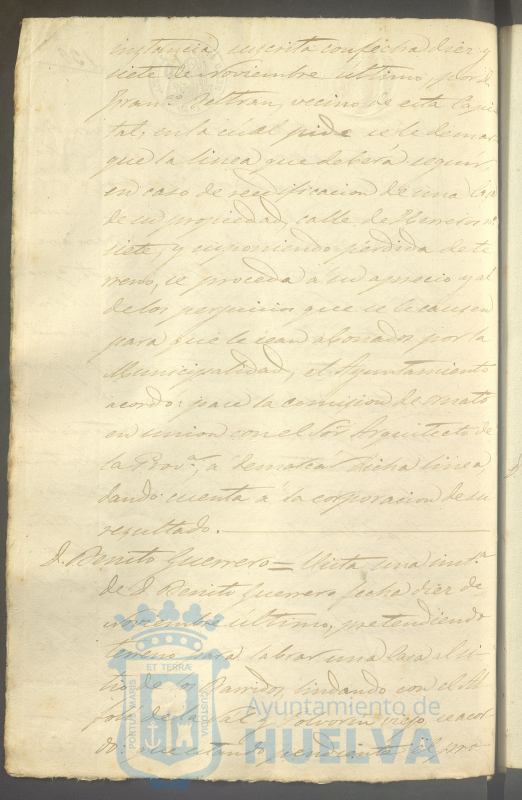 instancia suscrita con fecha diez y
siete de Noviembre último, por d.
Franco. Beltran, vecino de esta Capi-
tal, en la cual pide se le demar-
que la linea que deberá seguir,
en caso de reedificacion de una casa
de su propiedad, calle de Herreros no.
siete, y suponiendo perdida de te-
rreno, se proceda á su aprecio y al
de los perjuicios que se le causen
para que le sean abonados por la
Municipalidad, el Ayuntamiento
acordó: pase la comision de ornato
en union con el Sor. Arquitecto de
la Prova., á demarcar dicha linea
dando cuenta á la corporacion de su
resultado.
D. Benito Guerrero = Vista una insta.
de D. Benito Guerrero fecha diez de
noviembre último, pretendiendo
terreno para labrar una casa al si-
tio de los Barridos, lindando con el Al-
folí de la Sal y Polvorin viejo, se acor-
dó: que estando pendiente el pro-
PORTUS MARIS
ET TERRÆ
CUSTODIA
Ayuntamiento de
HUELVA